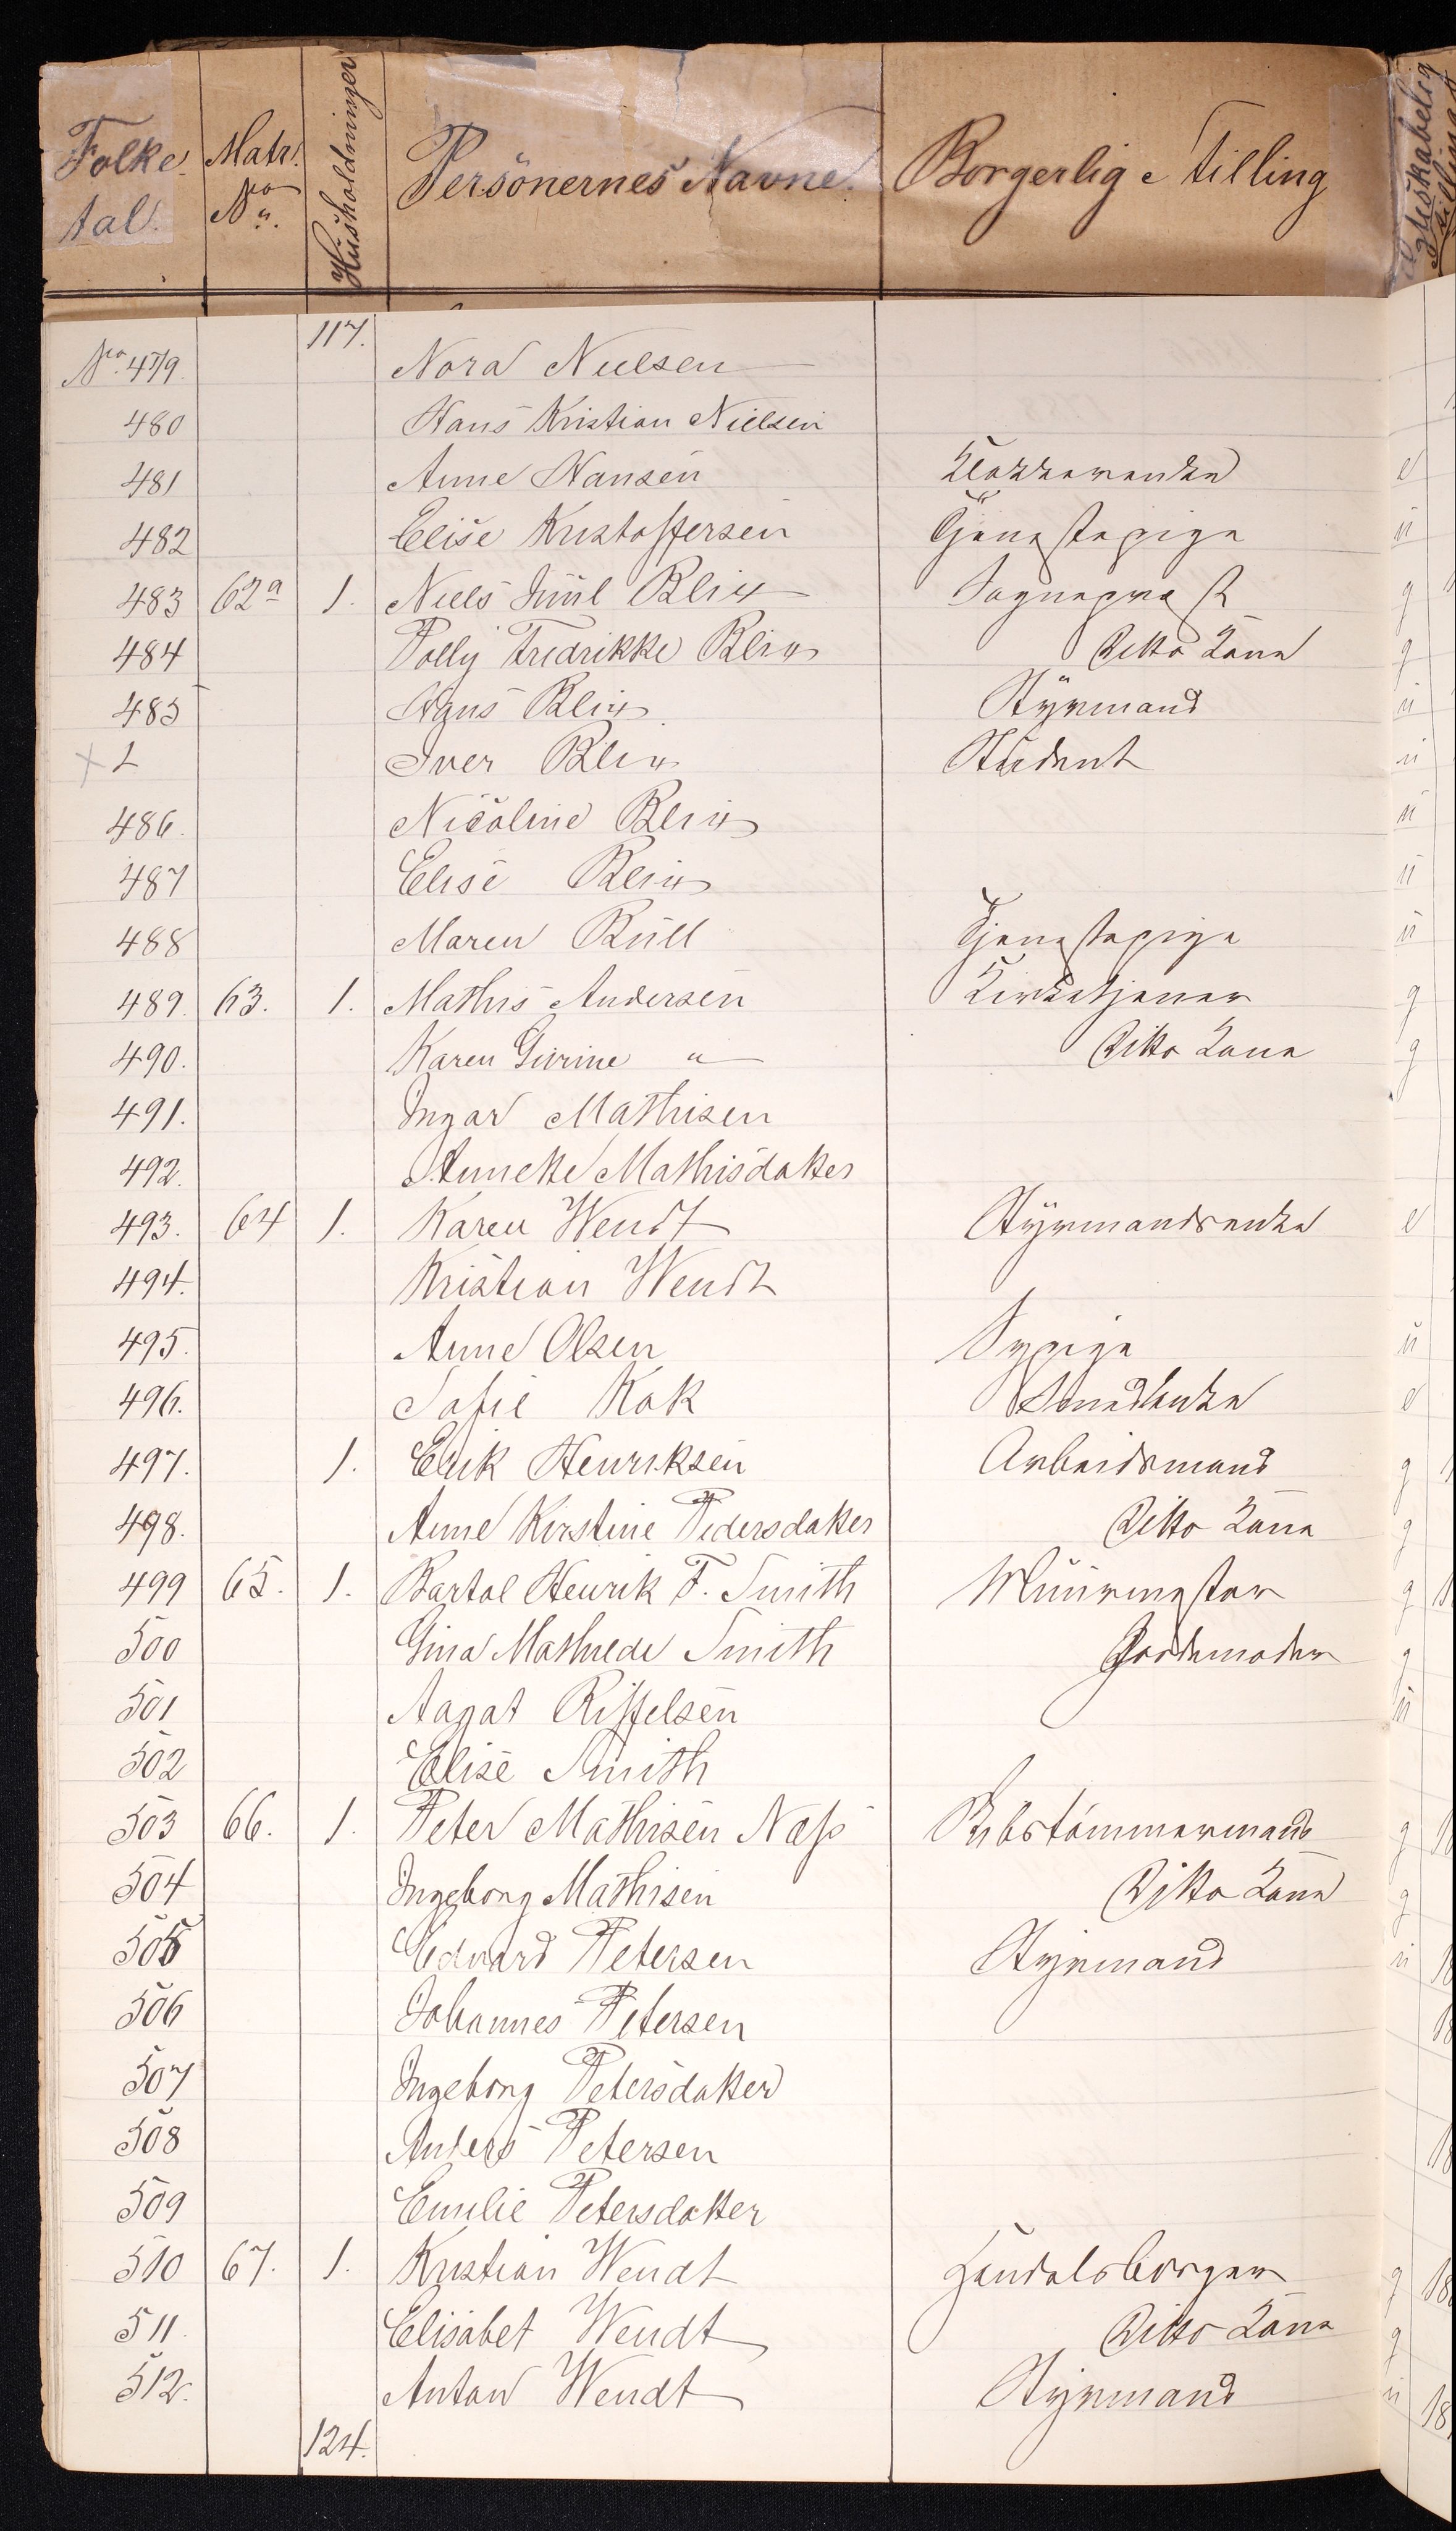 Folke tal. Matr. No Husholdninger Personernes Navne. Borgerlig Stilling
117.
No. 479 Nora Nielsen
480 Hans Kristian Nielsen
481 Anne Hansen Klokkerenke e
482 Elise Kristoffersen Tjenestepige u
483 62a 1. Niels Juul Blix Sogneprest g
484 Polly Fredrikke Blix Ditto Kone g
485 Hans Blix Styrmand u
+ L Iver Blix Student u
486. Nicoline Blix u
487 Elise Blix u
488 Maren Bull Tjenestepige u
489. 63. 1. Mathis Andersen Kirketjener g
490. Karen Gurine " Ditto Kone g
491. Ingar Mathisen
492. Annette Mathisdatter
493. 64 1. Karen Wendt Styrmandsenke e
494. Kristian Wendt
495. Anne Olsen Sypige u
496. Sofie Kok e
497. 1. Erik Henriksen Arbeidsmand g
498. Anne Kirstine Pedersdatter Ditto Kone g
499 65. 1. Bartol Henrik F. Smith Muurmester g
500 Gina Mathilde Smith Jordemoder g
501 Aagat Riffelsen u
502 Elise Smith
503 66. 1. Peter Mathisen Næss Skibstømmermand g
504 Ingeborg Mathisen Ditto Kone g
505 Edvard Petersen Styrmand u
506 Johannes Petersen
507 Ingeborg Petersdatter
508 Anders Petersen
509 Emilie Petersdatter
510 67. 1. Kristian Wendt Handelsborger g 18
511. Elisabet Wendt Ditto Kone g
512. Anton Wendt Styrmand u 18
124.